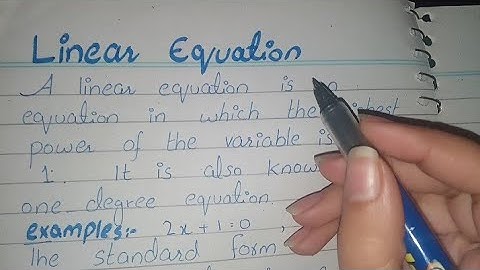 Linear Equation
A linear equation is
equation in which the
power of the variable is
1. It is also
one degree equation.
examples:- 2x+1=0,
The standard form